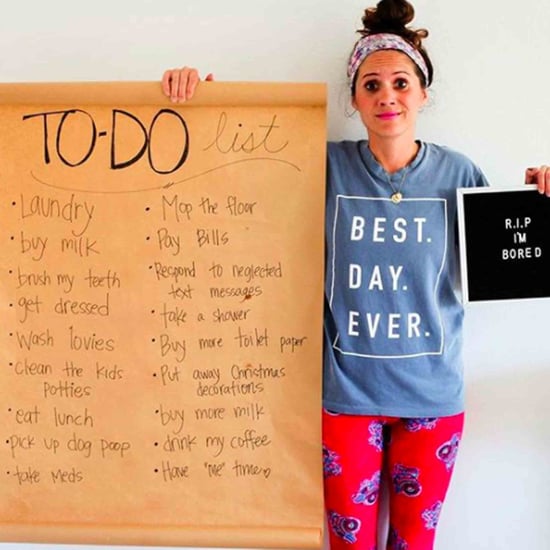 TO-DO list
• Laundry
• buy milk
• brush my teeth
• get dressed
• Wash lovies
• Clean the kids
potties
• eat lunch
• pick up dog poop
• take meds
• Mop the floor
• Pay Bills
• Respond to neglected
text messages
• take a shower
• Buy more toilet paper
• Put away Christmas
decorations
• buy more milk
• drink my coffee
• Have "me" time
BEST.
DAY.
EVER.
R.I.P
I'M
BORED